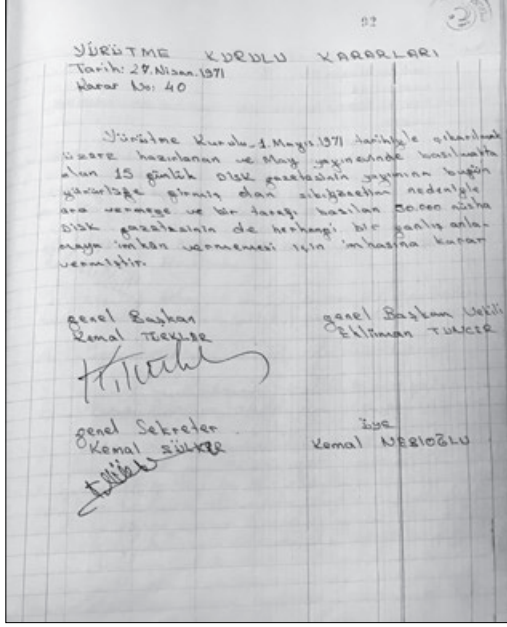 92
YÜRÜTME KURULU KARARLARI
Tarih: 27.Nisan.1971
Karar No: 40
Yürütme Kurulu 1.Mayıs.1971 tarihiyle çıkarılmak
üzere hazırlanan ve May yayınevinde basılmakta
olan 15 günlük DİSK gazetesinin yayımına bugün
yürürlüğe girmiş olan sıkıyönetim nedeniyle
ara vermeğe ve bir tarafı basılan 50.000 nüsha
DİSK gazetesinin de herhangi bir yanlış anla-
maya imkân vermemesi için imhasına karar
vermiştir.
genel Başkan
Kemal TÜRKLER
genel Başkan Vekili
Ehliiman TUNCER
genel Sekreter
Kemal SÜLKER
Üye
Kemal NEBİOĞLU